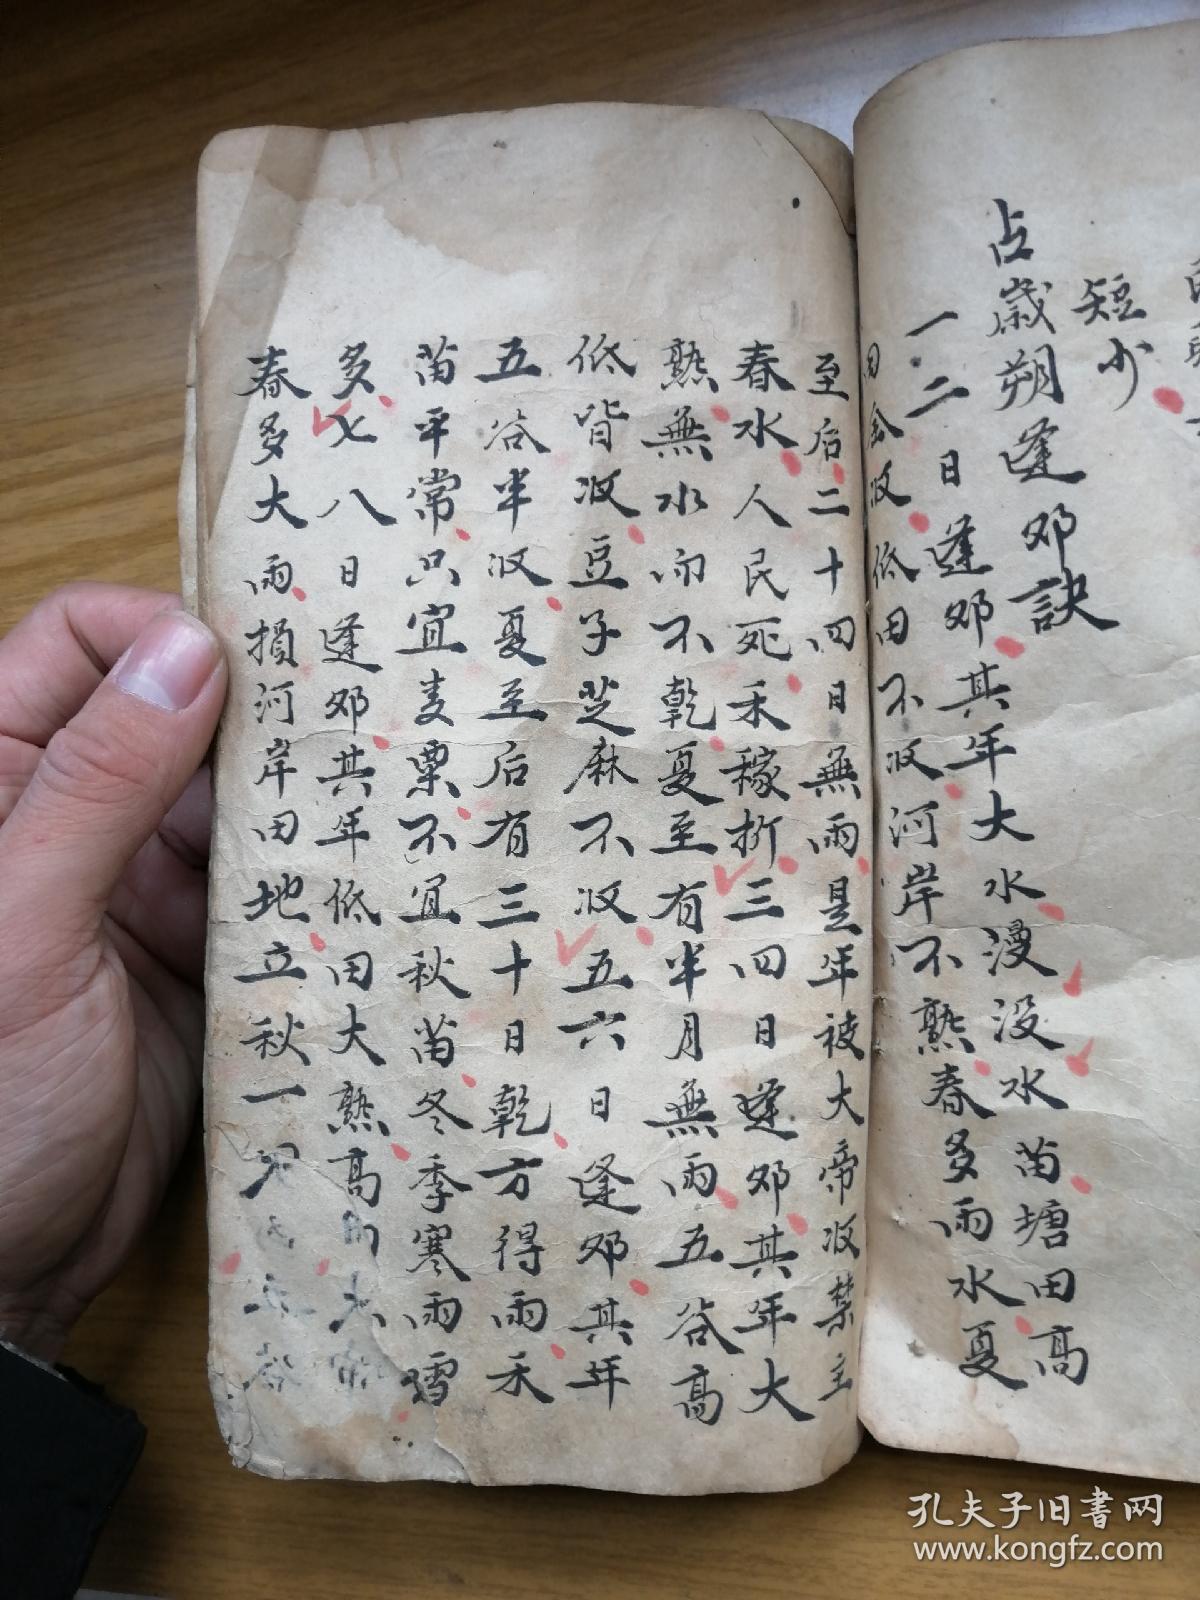 短少
占歲朔逢邜訣
一二日逢邜其年大水漫没水苗塘田高
田全收低田不收河岸不熟春多雨水夏
至后二十四日無雨是年被大帝收禁主
春水人民死禾稼折三四日逢邜其年大
熟無水而不乾夏至有半月無雨五谷高
低皆收豆子芝麻不收五六日逢邜其年
五谷半收夏至后有三十日乾方得雨禾
苗平常只宜麦粟不宜秋苗冬季寒雨雪
多七八日逢邜其年低田大熟高田大
春多大雨損河岸田地立秋一
孔夫子旧书网
www.kongfz.com